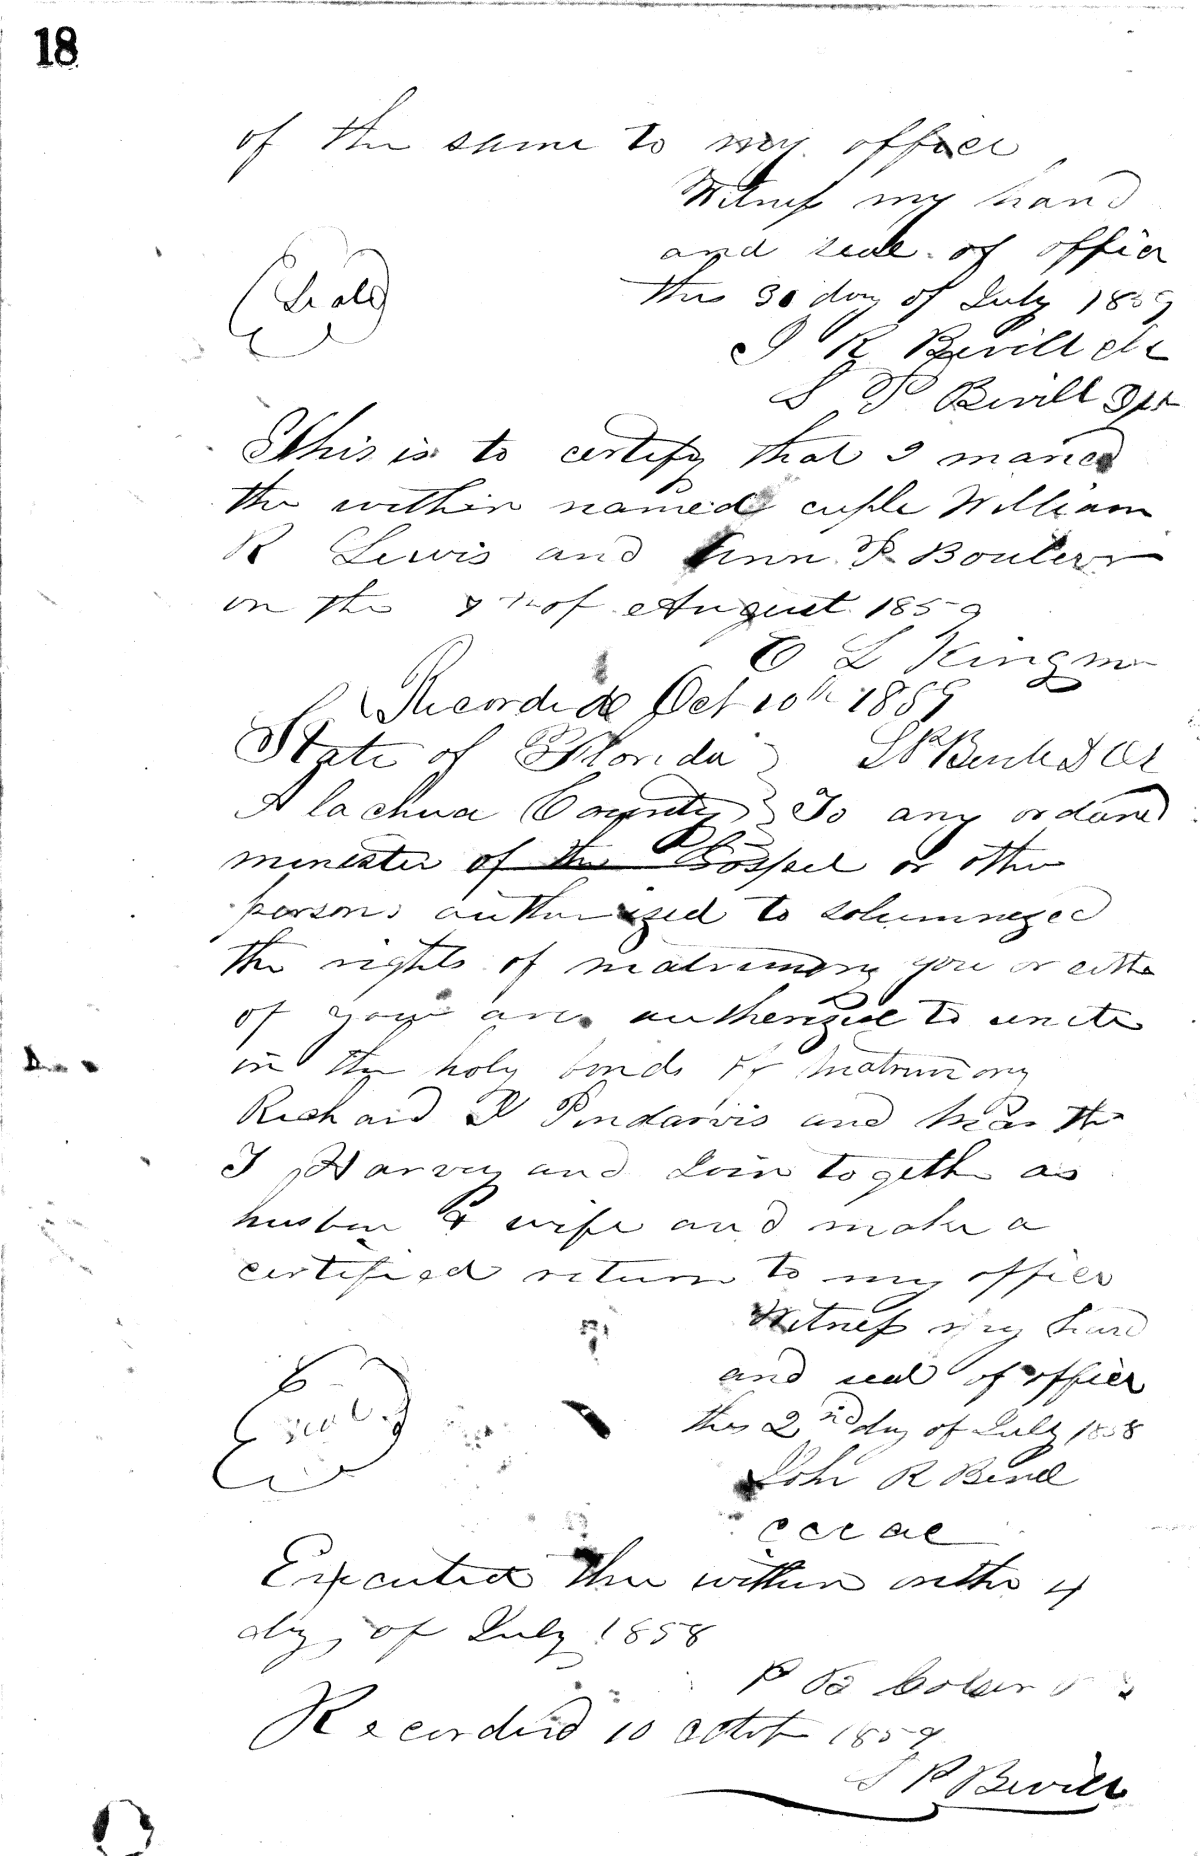 18
of the same to my office
Witness my hand
and seal of office
Seal
this 30 day of July 1859
J R Bevill Clk
S P Bevill Dpt
This is to certify that I maried
the within named cuple William
R Lewis and Ann
on the of August 1859
C L Kingmon
Recorded Oct 10th 1859
State of Florida } S P Bevill D Clk
Alachua County } To any ordaned
minester of the Gospel or other
persons authorized to solumnezed
the rights of matrimony you or eithe
of you are autherized to unite
in the holy bonds of matrimony
Richard Pindarvis and Martha
J Harvey and Join togeth as
husban & wife and make a
certified return to my office
Witness my hand
and seal of office
Seal
this 2nd day of July 1858
John R Bevil
ccc ac
Executed the within on the 4
dy of July 1858
P B
Recorded 10 octob 1859
S P Bevill